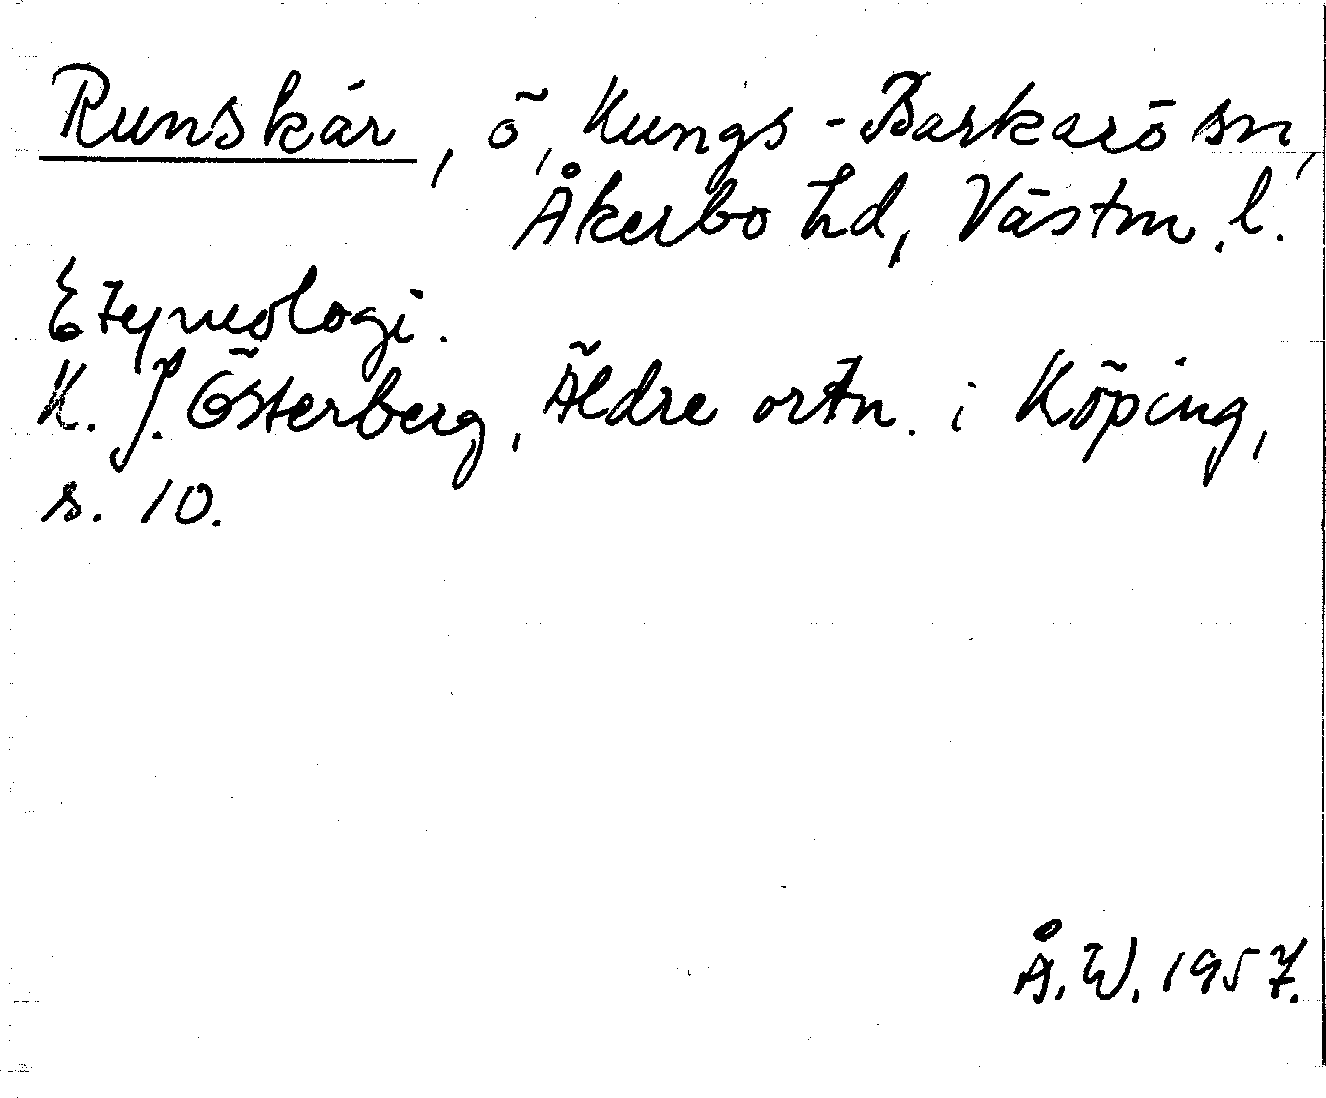 Runskär, ö, Kungs-Barkarö sn,
Åkerbo hd, Västm. l.
Etymologi.
K. J. Österberg, Äldre ortn. i Köping,
s. 10.
Å. W. 1957.